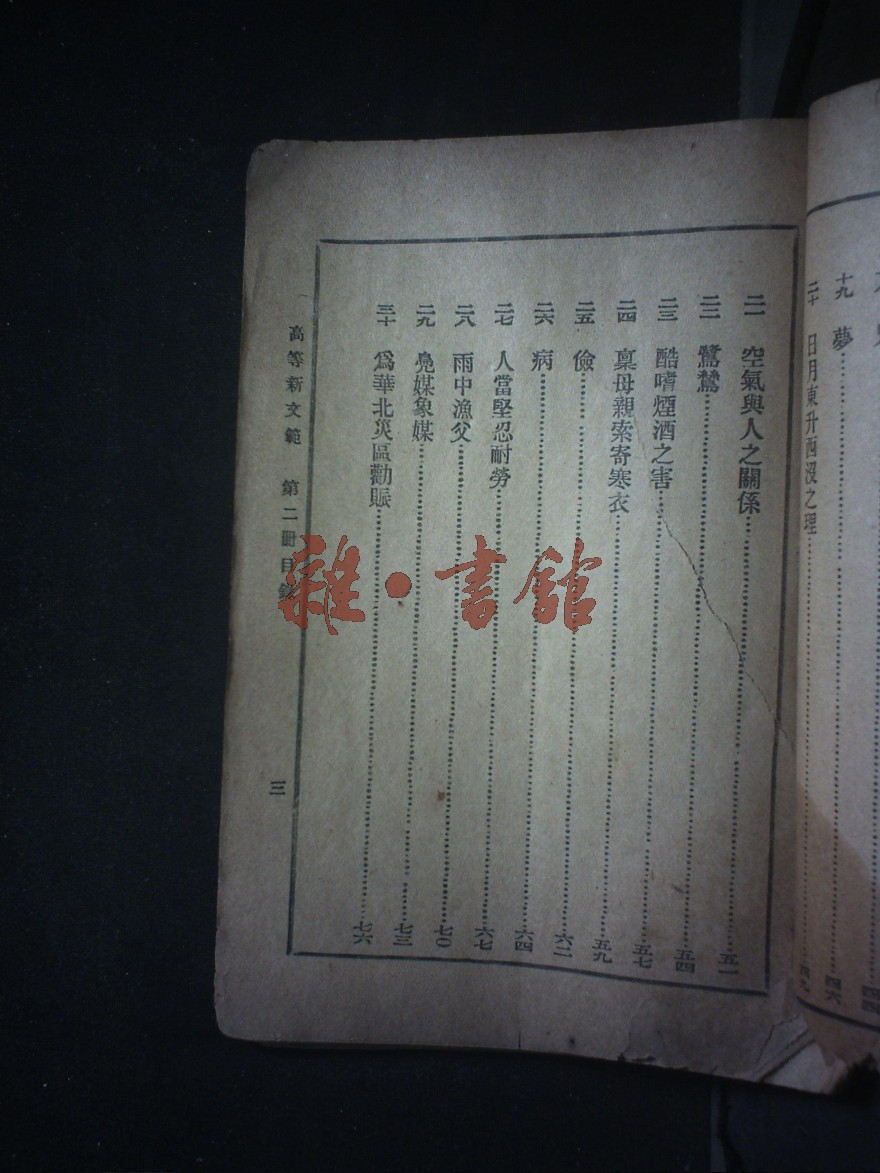 十九 夢 四六
二十 日月東升西沒之理 四九
二一 空氣與人之關係 五一
二二 鷺鷥 五四
二三 酷嗜煙酒之害 五七
二四 稟母親索寄寒衣 五九
二五 儉 六二
二六 病 六四
二七 人當堅忍耐勞 六七
二八 雨中漁父 七〇
二九 鳧媒象媒 七三
三十 爲華北災區勸賑 七六
高等新文範 第二冊目錄
三
雜·書館